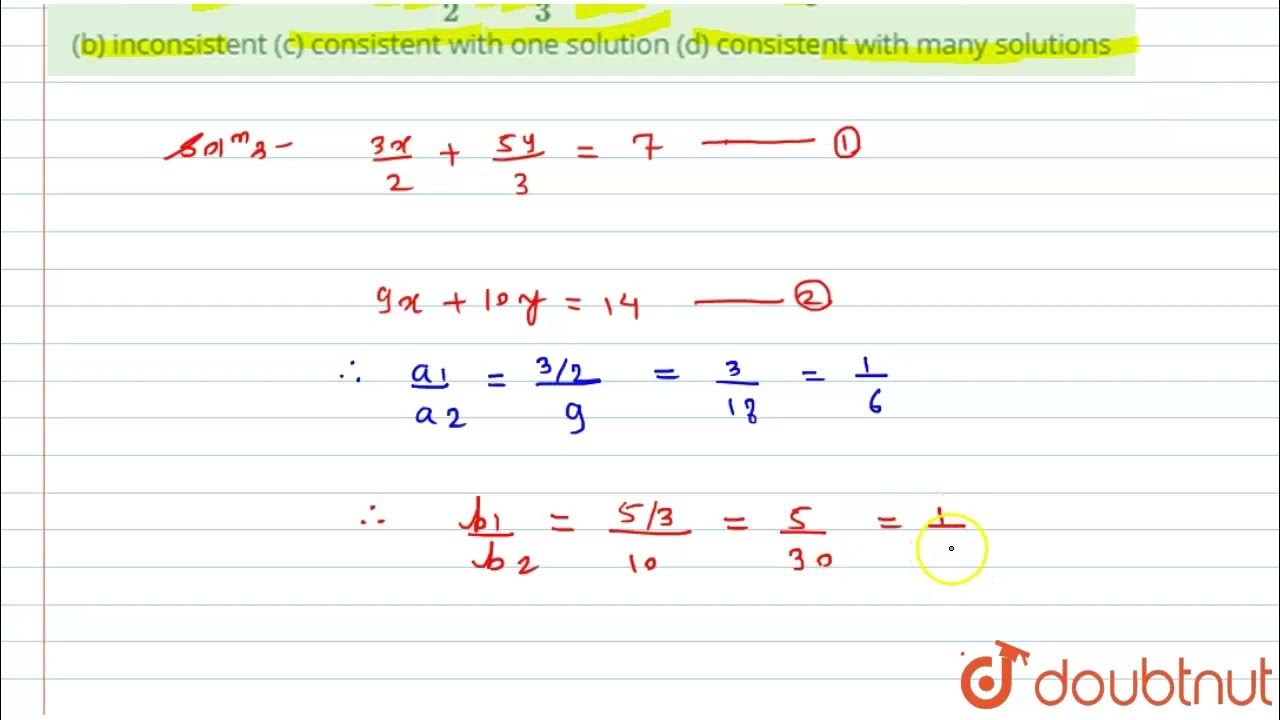 2 3
(b) inconsistent (c) consistent with one solution (d) consistent with many solutions
Solⁿs- 3x/2 + 5y/3 = 7 —— ①
9x + 10y = 14 —— ②
∴ a1/a2 = 3/2/9 = 3/18 = 1/6
∴ b1/b2 = 5/3/10 = 5/30 = 1/
doubtnut